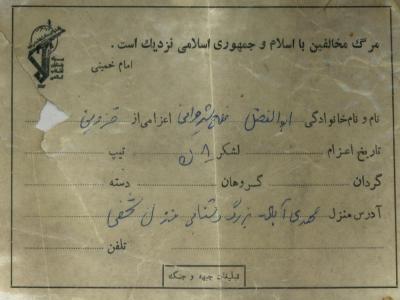 مرگ مخالفین با اسلام و جمهوری اسلامی نزدیك است .
امام خمینی
نام و نام خانوادگی ابوالفضل اعزامی از قزوین
تاریخ اعزام لشکر ۸ تیپ
گردان گروهان دسته
آدرس منزل مهدی آباد بزرگ منزل شخصی
تلفن
تبلیغات جبهه و جنگ